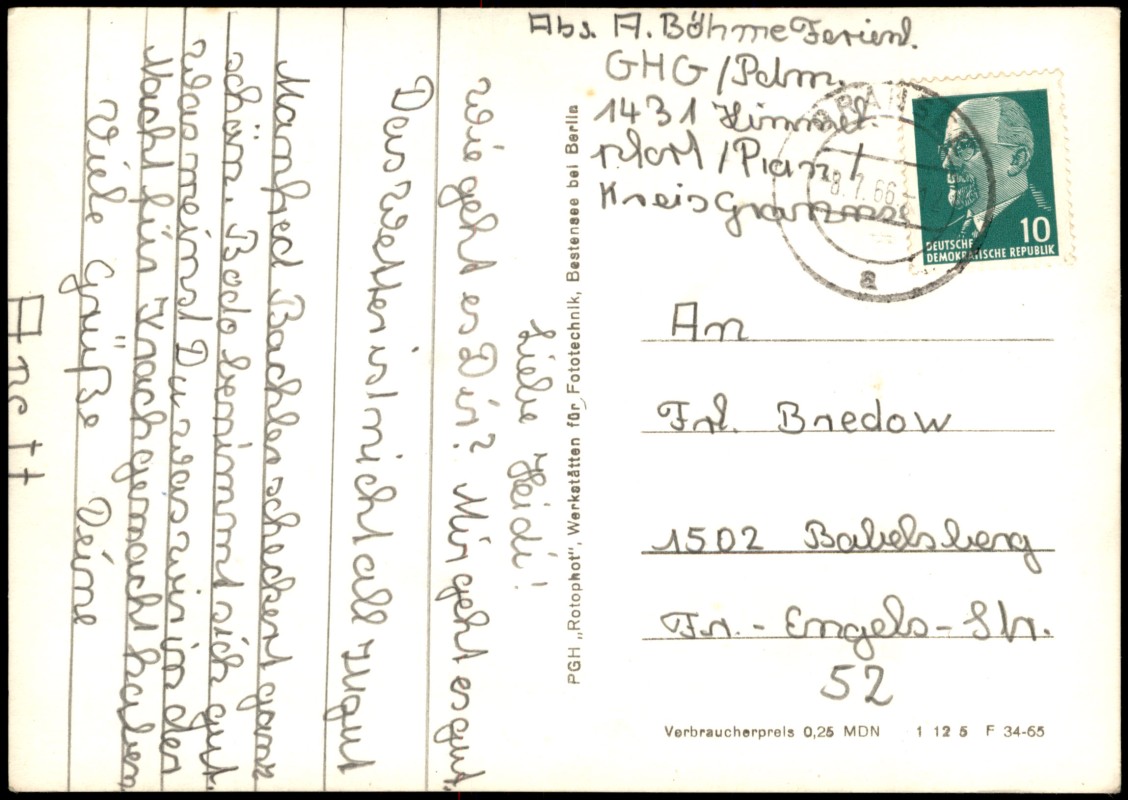 Liebe Heidi!
Wie geht es Dir? Mir geht es gut.
Das Wetter ist nicht all zu gut
Manfred Bachler scheckert ganz
schön. Bodo benimmt sich gut.
Was meinst Du was wir in der
Nacht für Krach gemacht haben
Viele Grüße Deine
Anett
PGH „Rotophot", Werkstätten für Fototechnik, Bestensee bei Berlin
Abs. A. Böhme Ferienl.
GHG/Pdm.
1431 Himmel.
pfort/
Kreis Gransee
8.7.66
a
10
DEUTSCHE
DEMOKRATISCHE REPUBLIK
An
Frl. Bredow
1502 Babelsberg
Fr.-Engels-Str.
52
Verbraucherpreis 0,25 MDN 1 12 5 F 34-65